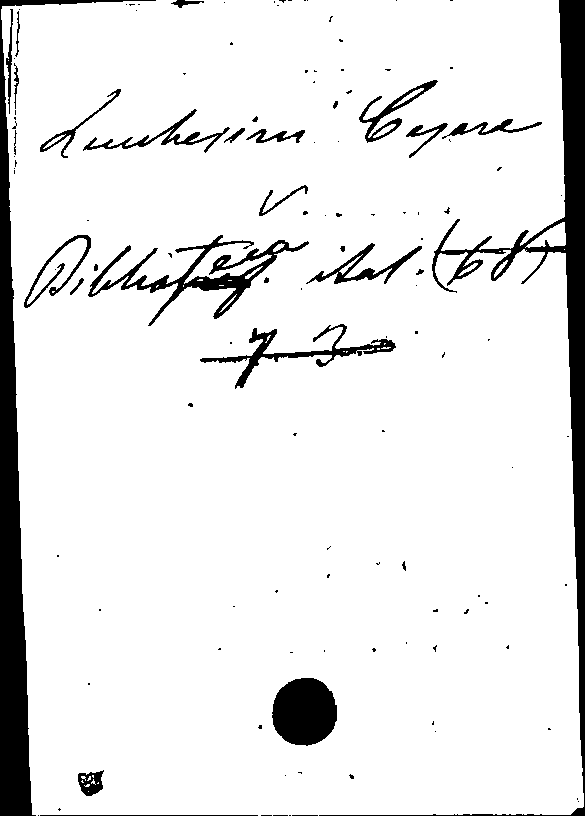 Lucchesini Cesare
v.
Biblioteca ital. (68)
7 3